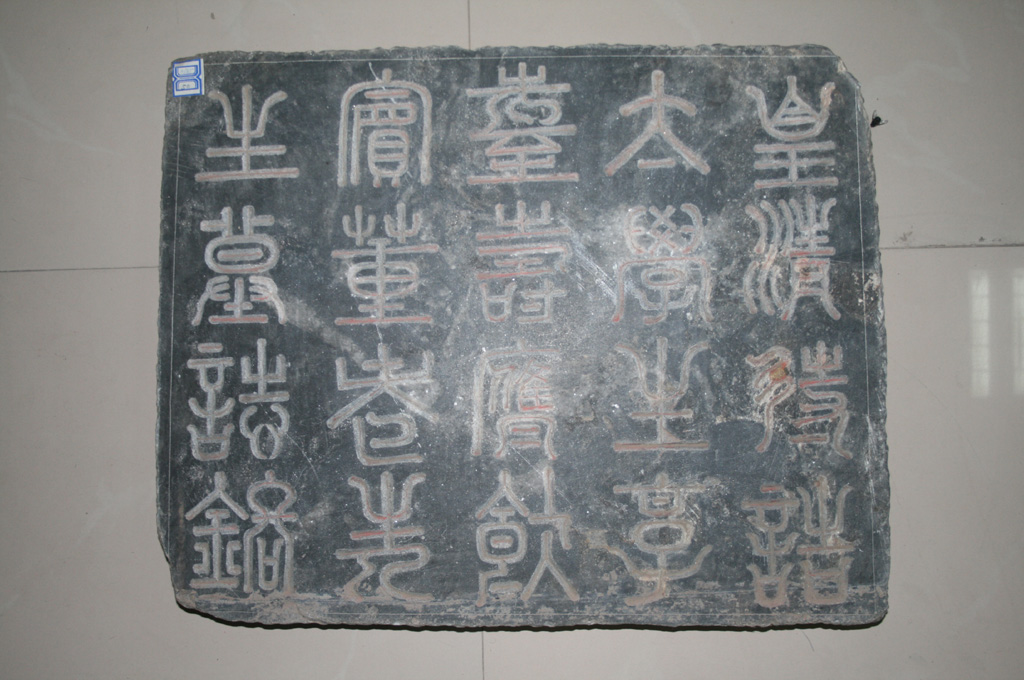 皇清待誥
太學生享
耋壽膺飲
賓董老先
生墓誌銘